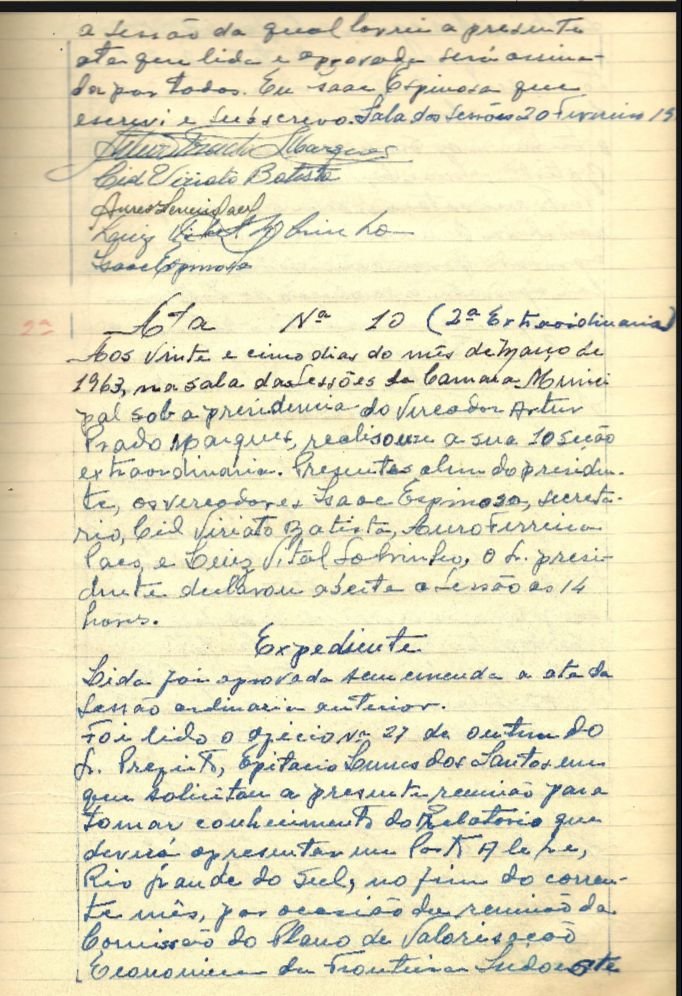 a sessão da qual lavrei a presente
ata que lida e aprovada será assina-
da por todos. Eu Isaac Espinosa que
escrevi e subscrevo. Sala das Sessões 20 Fevereiro 19
Marques
Cid Viriato Batista
Auro Ferreira Paes
Luiz Vital Sobrinho
Isaac Espinosa
2ª
Ata Nº 10 (2ª Extraordinaria)
Aos vinte e cinco dias do mês de março de
1963, na sala das Sessões da Camara Munici
pal sob a presidencia do Vereador Artur
Prado Marques, realisou-se a sua 10 seção
extraordinaria. Presentes alem do presiden-
te, os vereadores Isaac Espinosa, secreta-
rio, Cid Viriato Batista, Auro Ferreira
Paes e Luiz Vital Sobrinho, o Sr. presi-
dente declarou aberta a sessão as 14
horas.
Expediente
Lida foi aprovada sem emenda a ata da
sessão ordinaria anterior.
Foi lido o oficio Nº 27 de do
Sr. Prefeito, Epitacio dos Santos em
que solicitou a presente reunião para
tomar conhecimento do Relatorio que
deverá apresentar em Porto Alegre,
Rio Grande do Sul, no fim do corren-
te mês, por ocasião da reunião da
Comissão do Plano de Valorisação
Economica da Fronteira Sudoeste